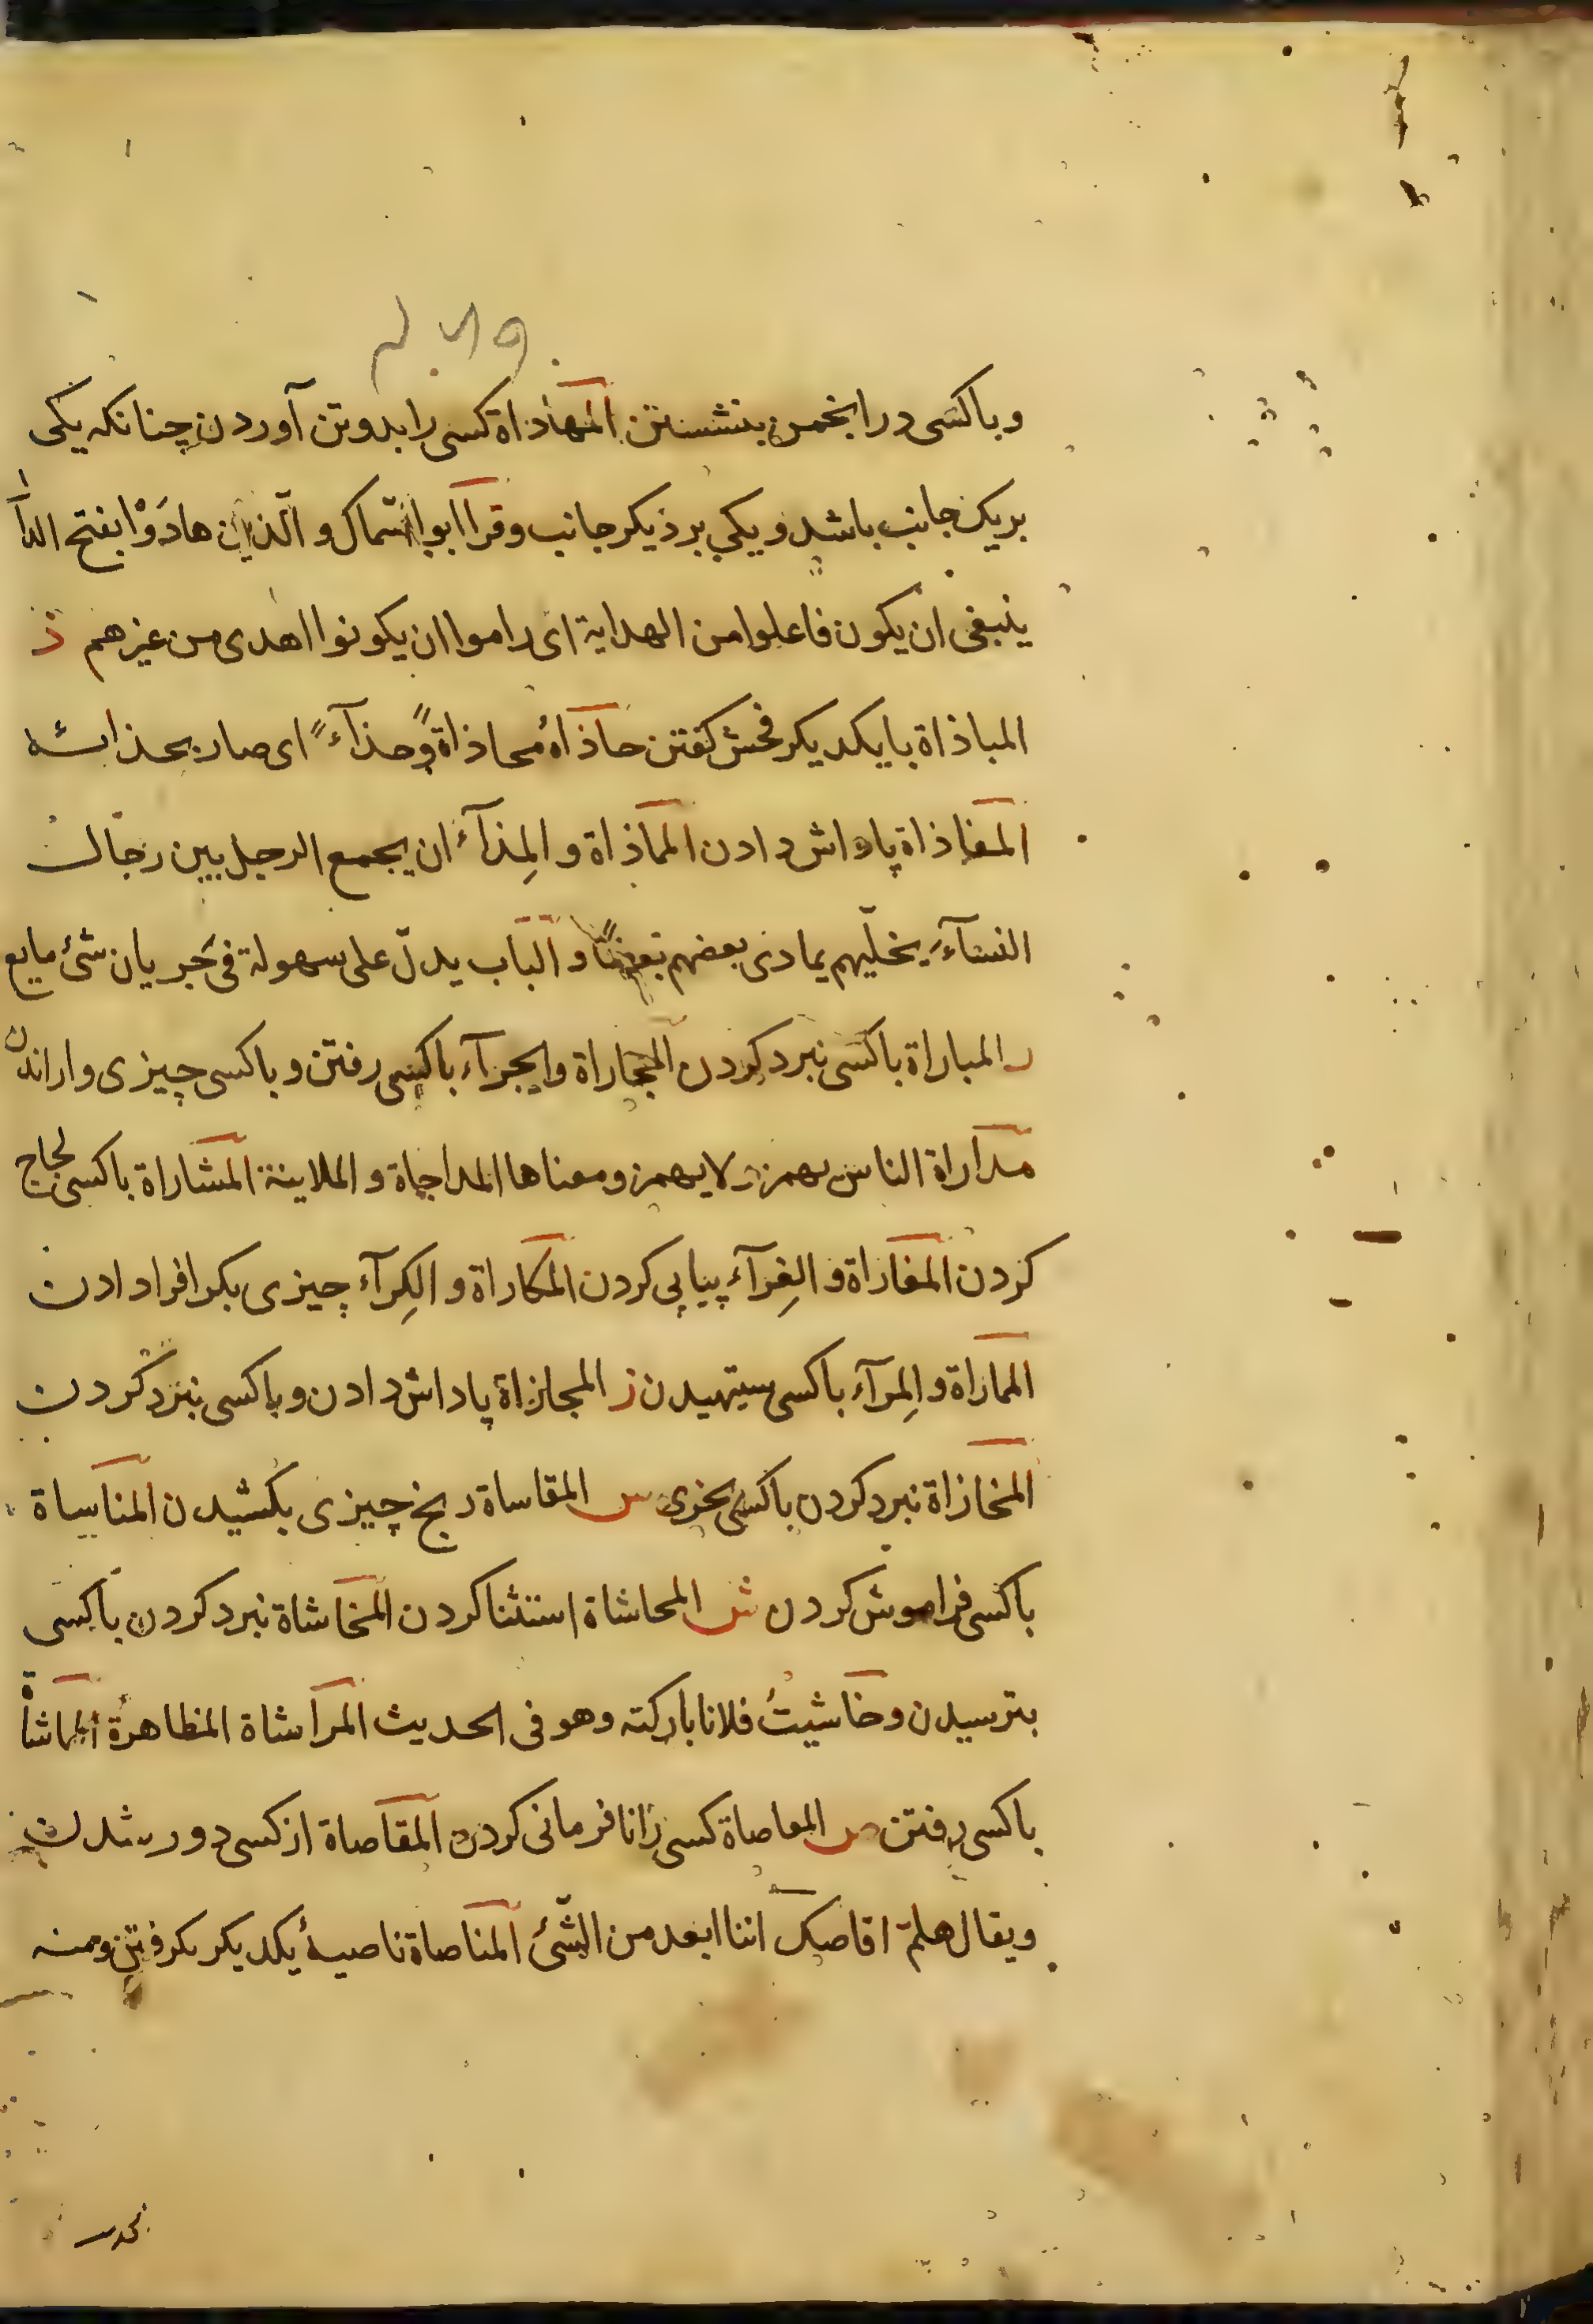 وباکسی در انجمن بنشستن المهاداة کسی را بدوتن آوردن چنانکه یکی
بریک جانب باشد و یکی بر ذیکر جانب وقرا ابوا السّماک و الّذین هادَوْا بفتح الدآ
ینبغی ان یکون فاعلوا من الهدایة ای راموا ان یکونوا اهدی من غیرهم ذ
المباذاة بایکدیکر فحش کفتن حاذاهُ محاذاةً وحذآءً ای صار بحذائه
المفاذاة پاداش دادن المماذاة و المِذآءُ ان یجمع الرجل بین رجال
النسآءَ یخلّیهم یماذی بعضهم بعضًا و الباب یدلّ علی سهولة فی جَریان شیٔ مایع
ر المباراة باکسی نبرد کردن المجاراة والجرآء باکسی رفتن و باکسی چیزی واراندن
مداراة الناس یهمز ولایهمز ومعناها المداجاة و الملاینة المشاراة باکسی لجاج
کردن المغاراة و الغِرآء پیاپی کردن المکاراة و الکِرآء چیزی بکرا فرادادن
المماراة و المِرآء باکسی ستیهیدن ز المجازاة پاداش دادن و باکسی نبرد کردن
المخازاة نبرد کردن باکسی بخزی س المقاساة رنج چیزی بکشیدن المناساة
باکسی فراموش کردن ش المحاشاة استثنا کردن المخاشاة نبرد کردن باکسی
بترسیدن و خاشیتُ فلانا بارکته وهو فی الحدیث المراشاة المظاهرة المماشاة
باکسی رفتن ص المعاصاة کسی را نافرمانی کردن المقاصاة از کسی دور شدن
ویقال هلمّ اقاصک اننا ابعد من الشّیٔ المناصاة ناصیهٔ یکدیکر بکرفتن ومنه